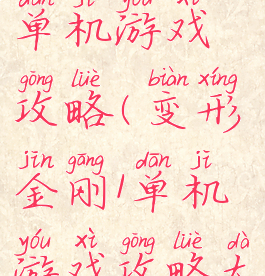 dān jī yóu xì
单机游戏
gōng lüè biàn xíng
攻略(变形
jīn gāng dān jī
金刚/单机
yóu xì gōng lüè dà
游戏攻略大